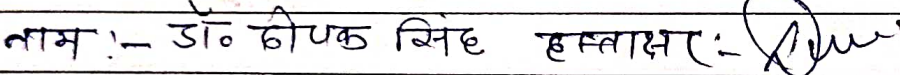 नाम :- डॉ० दीपक सिंह हस्ताक्षर :-